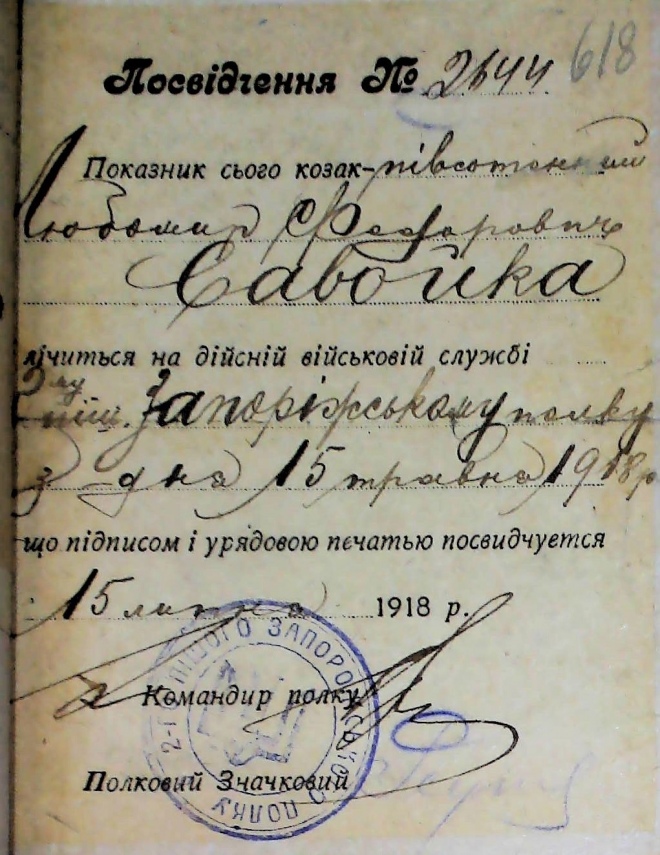 Посвідчення № 2644 618
Показник сього козак-півсотенний
Любомир Федорович
Савойка
лічиться на дійсній військовій службі
2му
піш. Запоріжському полку
з дня 15 травня 1918 р
що підписом і урядовою печатью посвидчуется
15 липня 1918 р.
Командир полку
Полковий Значковий
2-ГО ПІШОГО ЗАПОРОЗЬКОГО ПОЛКУ